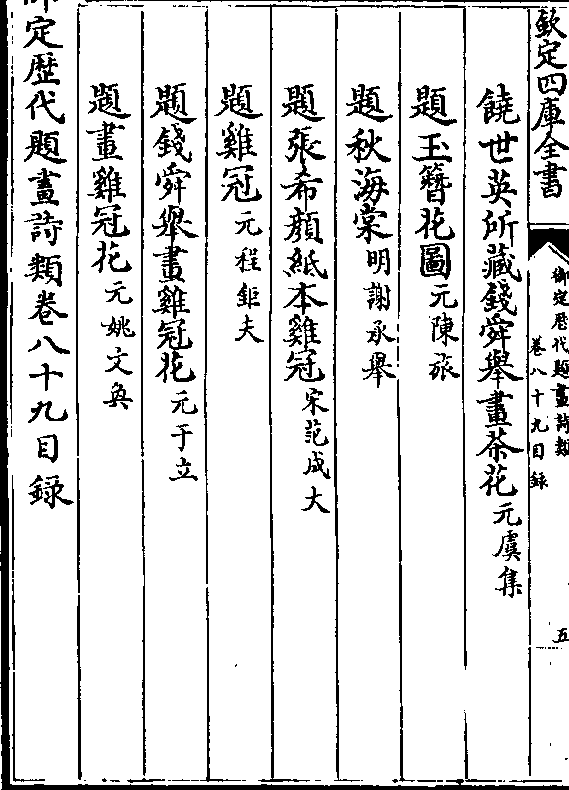 欽定四庫全書
御定歴代題畫詩類
卷八十九目録
五
饒世英所藏錢舜舉畫茶花元虞集
題玉簪花圖元陳旅
題秋海棠明謝承舉
題張希顔紙本雞冠宋范成大
題雞冠元程鉅夫
題錢舜舉畫雞冠花元于立
題畫雞冠花元姚文奐
御定歴代題畫詩類卷八十九目録